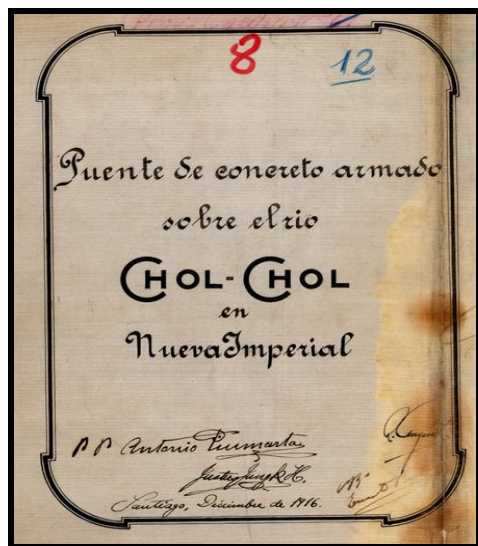 8
12
Puente de concreto armado
sobre el rio
CHOL-CHOL
en
Nueva Imperial
P P Antonio
Santiago, Diciembre de 1916.